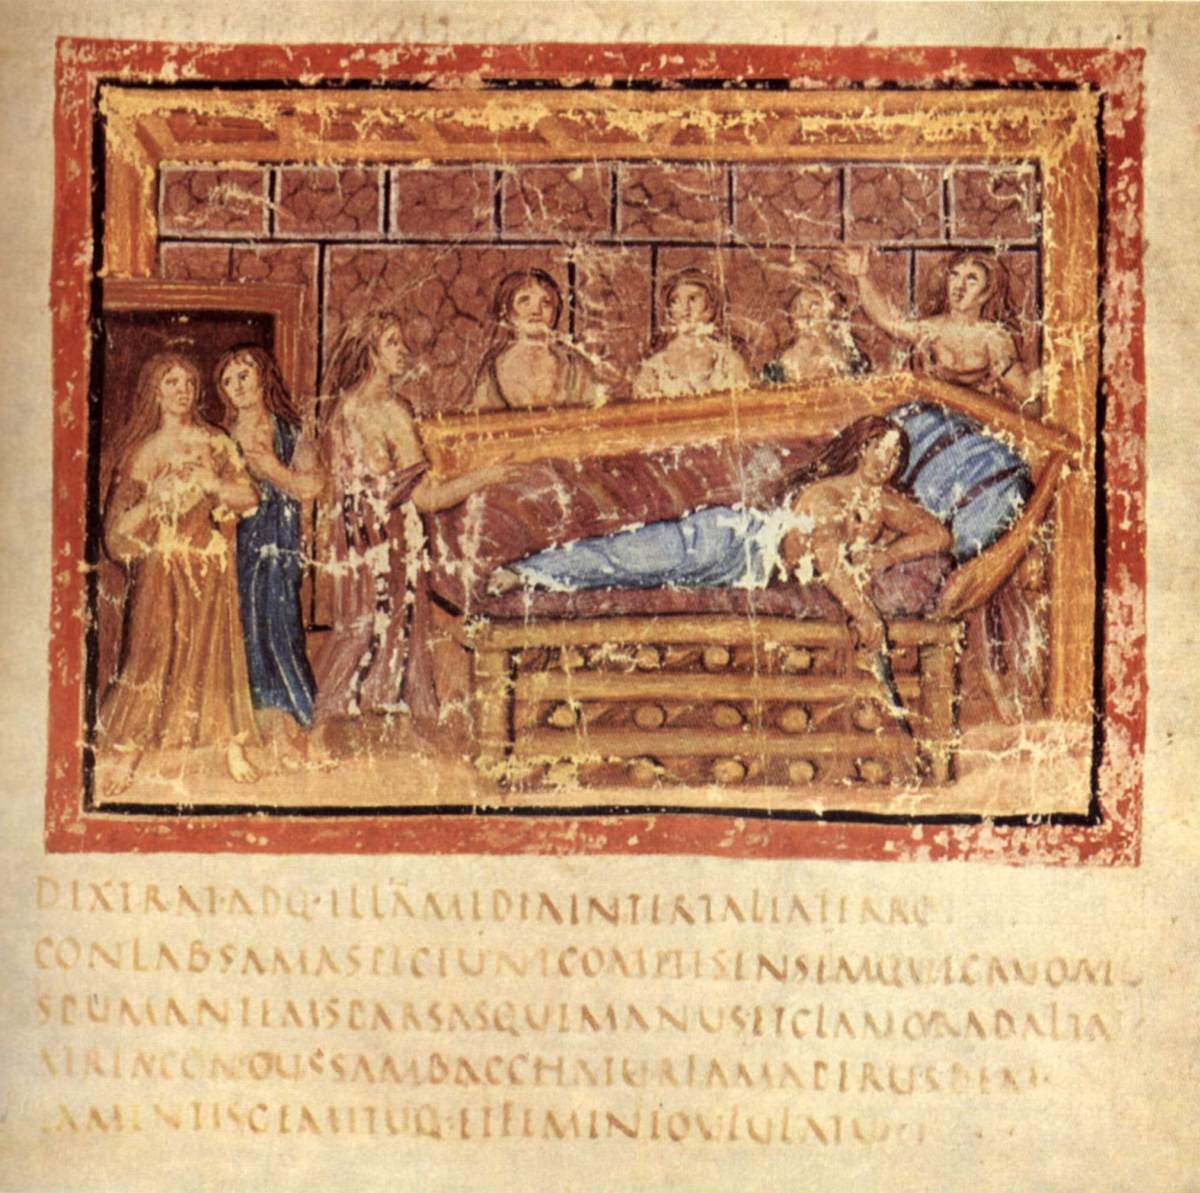 DIXERAT·ADQ·ILLĀMEDIAINTERTALIAFERRO
CONLABSAMASPICIUNTCOMITESENSEMQUECRUORE
SPUMANTEMSPARSASQUEMANUSITCLAMORADALTA
ATRIACONCUSSAMBACCHATURFAMAPERURBEM
LAMENTISGEMITUQ·ETFEMINEOULULATU